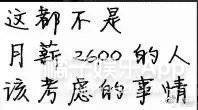 这都不是
月薪2600的人
该考虑的事情